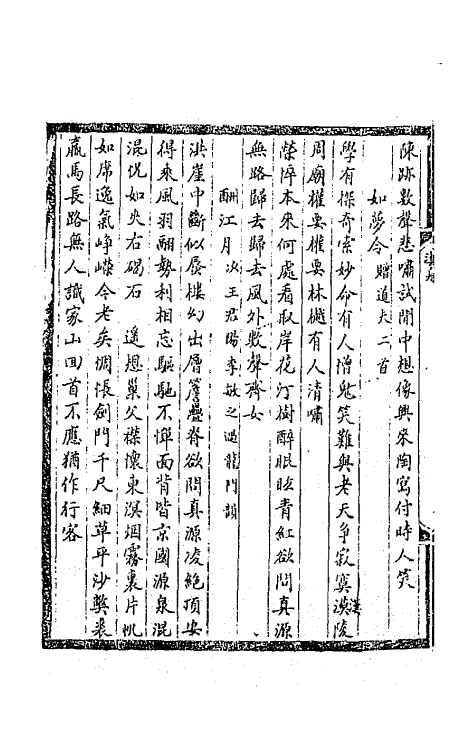 陳跡數聲悲嘯試閒中想像興來陶寫付時人笑
如夢令贈道夫二首
學有探奇索妙命有人憎鬼笑難與老天爭寂寞漢陵
周廟權要權要林樾有人清嘯
榮悴本來何處看取岸花汀樹醉眼眩青紅欲問真源
無路歸去歸去風外數聲齊女
酬江月次王君陽李敏之過龍門韻
洪崖中斷似蜃樓幻出層簷疊脊欲問真源凌絕頂安
得來風羽翮勢利相忘驅馳不憚面背皆京國源泉混
混恍如夾右碣石 遙想巢父襟懷東溟烟霧裹片帆
如席逸氣崢嶸今老矣惆悵劍門千尺細草平沙弊裘
羸馬長路無人識家山回首不應猶作行客